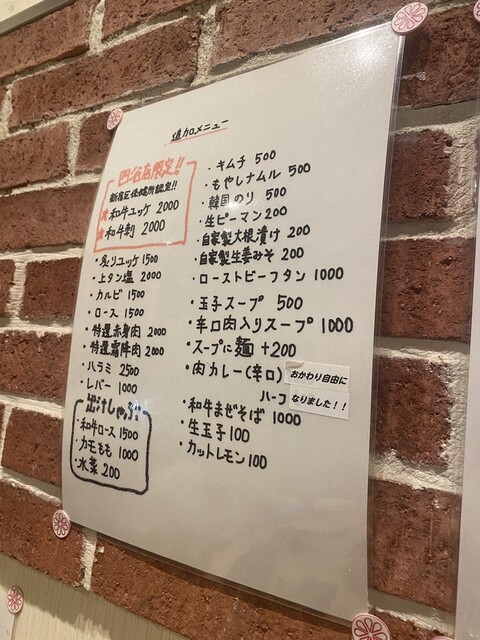 追加メニュー
四谷店限定!!
新宿区保健所認定!!
★和牛ユッケ 2000
★和牛刺 2000
・炙りユッケ 1500
・上タン塩 2000
・カルビ 1500
・ロース 1500
・特選赤身肉 2000
・特選霜降肉 2000
・ハラミ 2500
・レバー 1000
出汁しゃぶ
・和牛ロース 1500
・カモもも 1000
・水菜 200
・キムチ 500
・もやしナムル 500
・韓国のり 500
・生ピーマン 200
・自家製大根漬け 200
・自家製生姜みそ 200
・ローストビーフタン 1000
・玉子スープ 500
・辛口肉入りスープ 1000
・スープに麺 +200
・肉カレー(辛口)
ハーフ
おかわり自由に
なりました!!
・和牛まぜそば 1000
・生玉子 100
・カットレモン 100